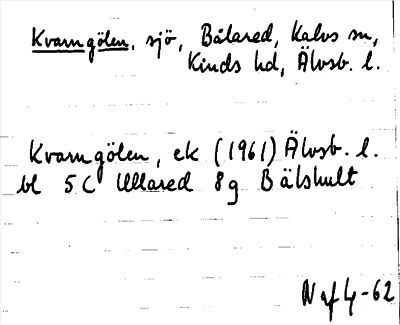 Kvarngölen, sjö, Bälared, Kalvs sn,
Kinds hd, Älvsb. l.
Kvarngölen, ek (1961) Älvsb. l.
bl 5C Ullared 8g Bälshult
N af 4-62